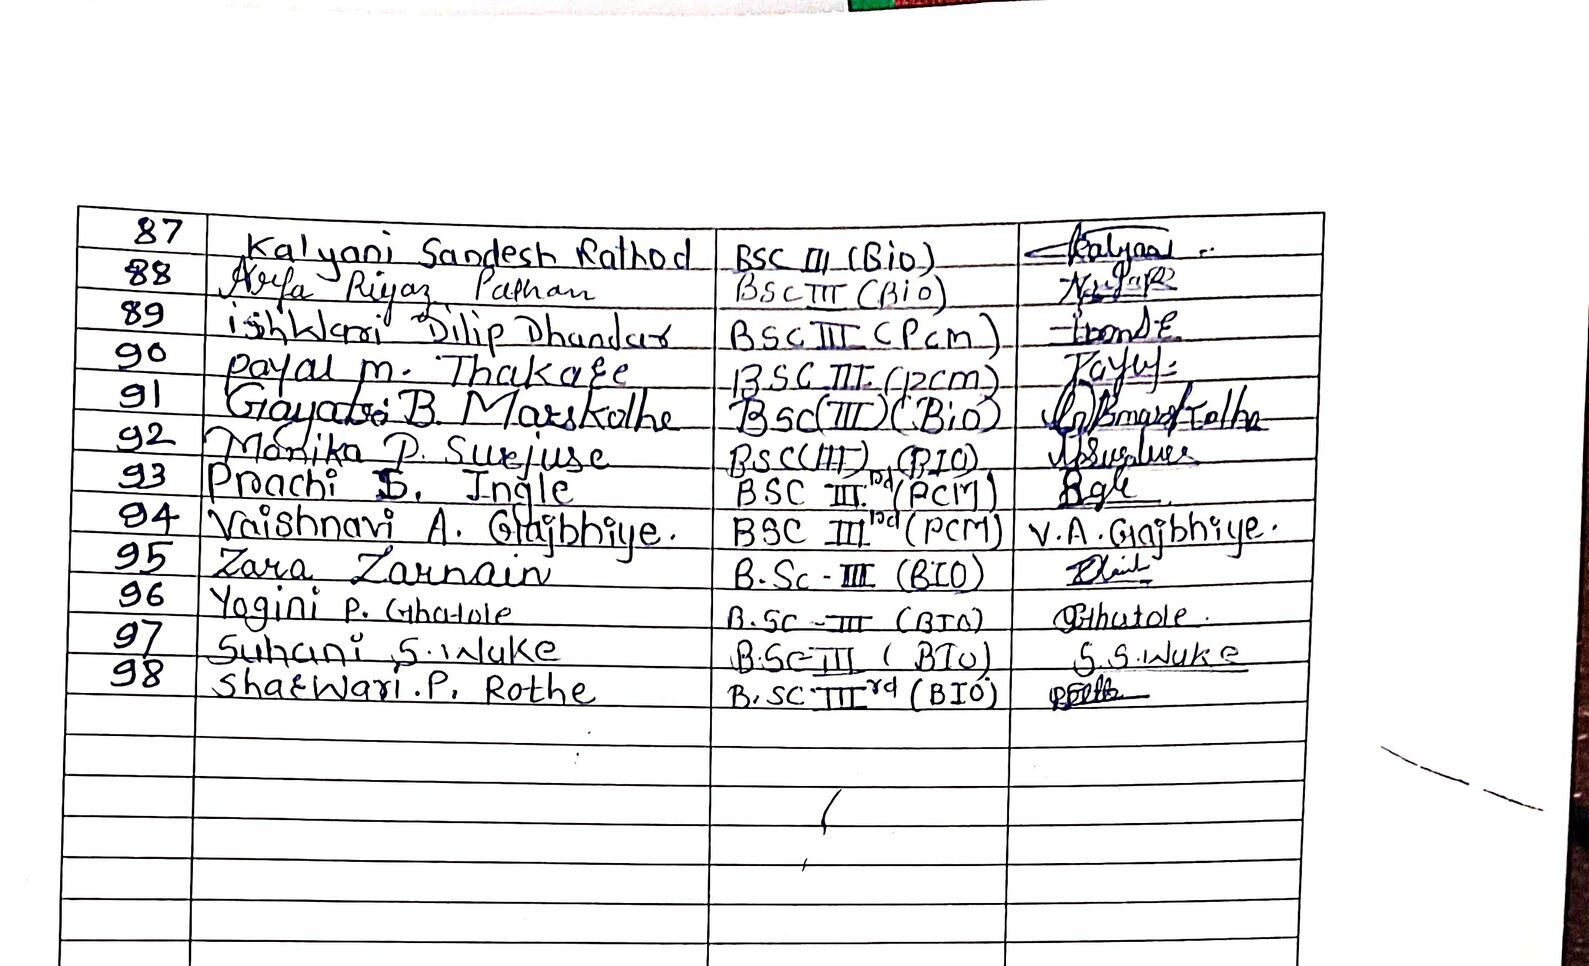 87 Kalyani Sandesh Rathod BSC III (Bio) Kalyani
88 Arfa Riyaz Pathan BSC III (Bio)
89 ishwari Dilip Dhandar BSC III (Pcm)
90 payal m. Thakare BSC III (pcm)
91 Gayatri B. Marskolhe BSc (III) (Bio)
92 Monika P. Surjuse BSC (III) (BIO)
93 Prachi S. Ingle BSC III rd (PCM)
94 Vaishnavi A. Gajbhiye. BSC III rd (PCM) V.A. Gajbhiye.
95 Zara Zarnain B.Sc - III (BIO)
96 Yogini P. Ghatole B.SC - III (BIO) Ghatole.
97 Suhani S. Wuke B.Sc-III (BIO) S.S. Wuke
98 Sharwari. P. Rothe B.SC III rd (BIO)